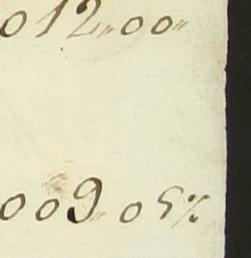 012"00"
009"05½